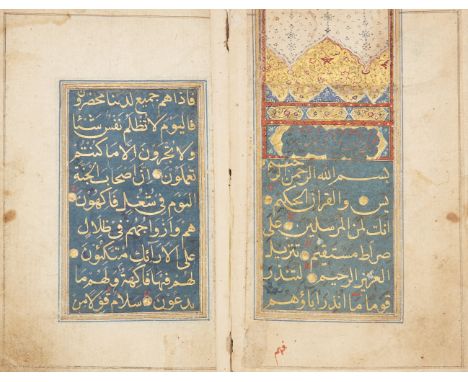 بسم الله الرحمن الر
يس والقرآن الحكيم
انك لمن المرسلين على
صراط مستقيم تنزيل
العزيز الرحيم لتنذر
قوما ما انذر اباؤهم
فهم
فاذا هم جميع لدينا محضرون
فاليوم لا تظلم نفس شيئا
ولا تجزون الا ما كنتم
تعملون ان اصحاب الجنة
اليوم في شغل فاكهون
هم وازواجهم في ظلال
على الارائك متكئون
لهم فيها فاكهة ولهم ما
يدعون سلام قولا من